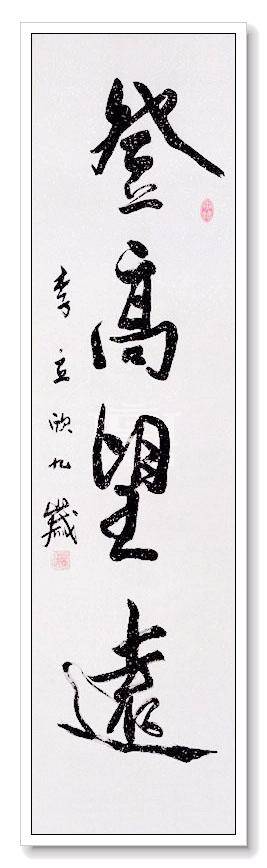 登高望遠
李立九歲